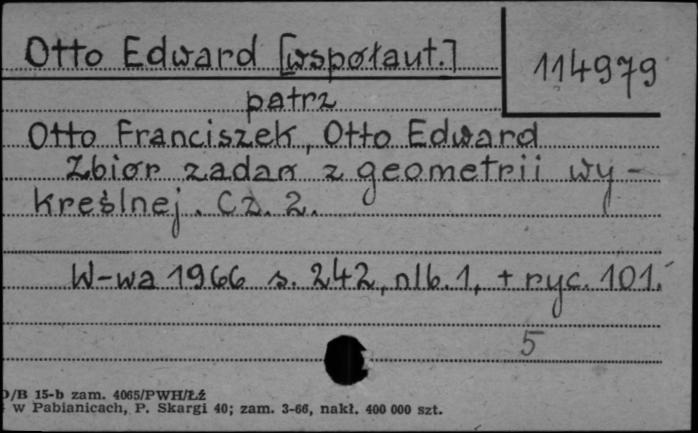 Otto Edward [współaut.]
114979
patrz
Otto Franciszek, Otto Edward
Zbiór zadań z geometrii wy-
kreślnej. Cz. 2.
W-wa 1966 s. 242, nlb. 1, + ryc. 101.
5
D/B 15-b zam. 4065/PWH/Łź
w Pabianicach, P. Skargi 40; zam. 3-66, nakł. 400 000 szt.